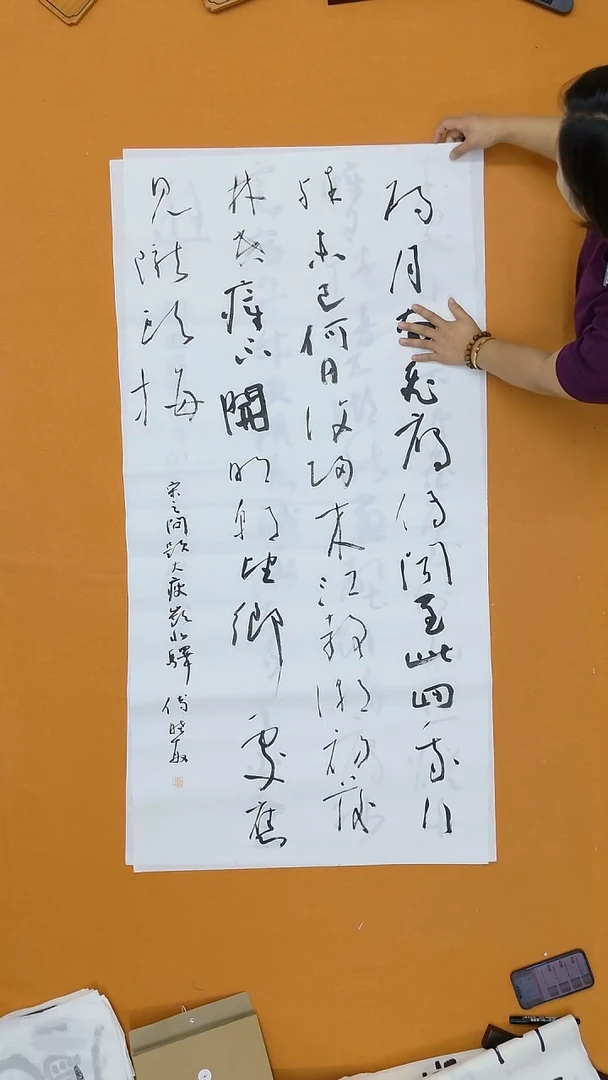 陽月南飛雁傳聞至此回我行
殊未已何日復歸来江静潮初落
林昏瘴不開明朝望鄉處應
見隴頭梅
宋之問題大庾嶺北驛